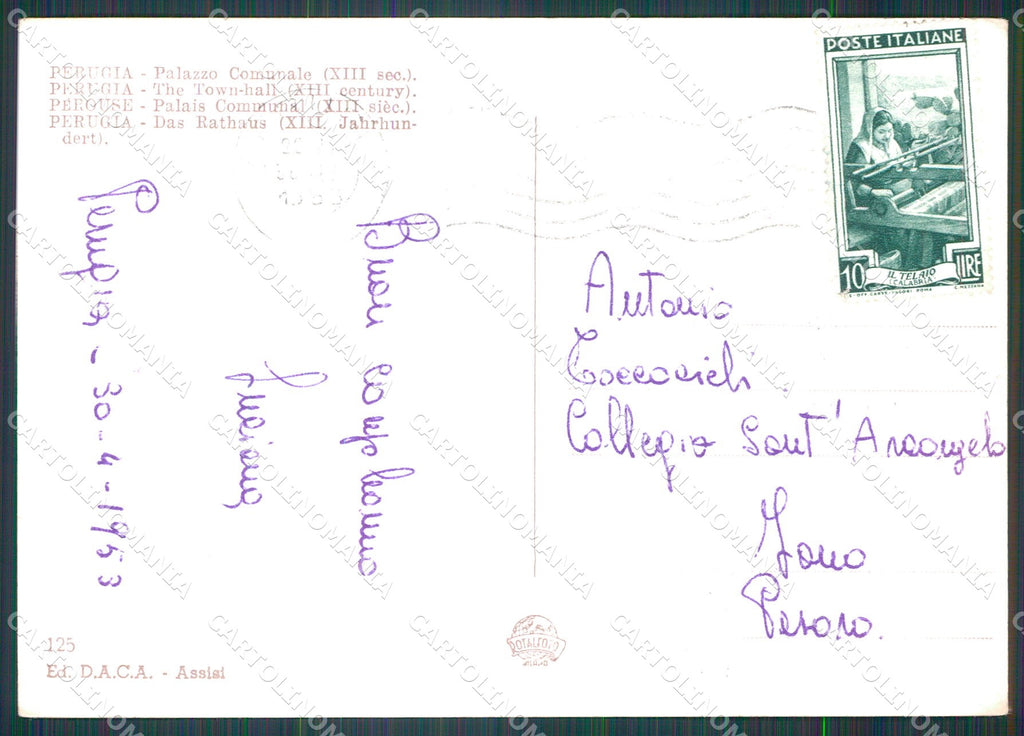 PERUGIA - Palazzo Comunale (XIII sec.).
PERUGIA - The Town-hall (XIII century).
PEROUSE - Palais Communal (XIII sièc.).
PERUGIA - Das Rathaus (XIII. Jahrhun-
dert).
Perugia - 30-4-1953
Buon compleanno
Luciana
POSTE ITALIANE
10 LIRE
IL TELAIO
(CALABRIA)
Antonio
Collegio Sant'Arcangelo
Fano
Pesaro.
125
Ed. D.A.C.A. - Assisi
ROTALFOTO
MILANO
CARTOLINOMANIA